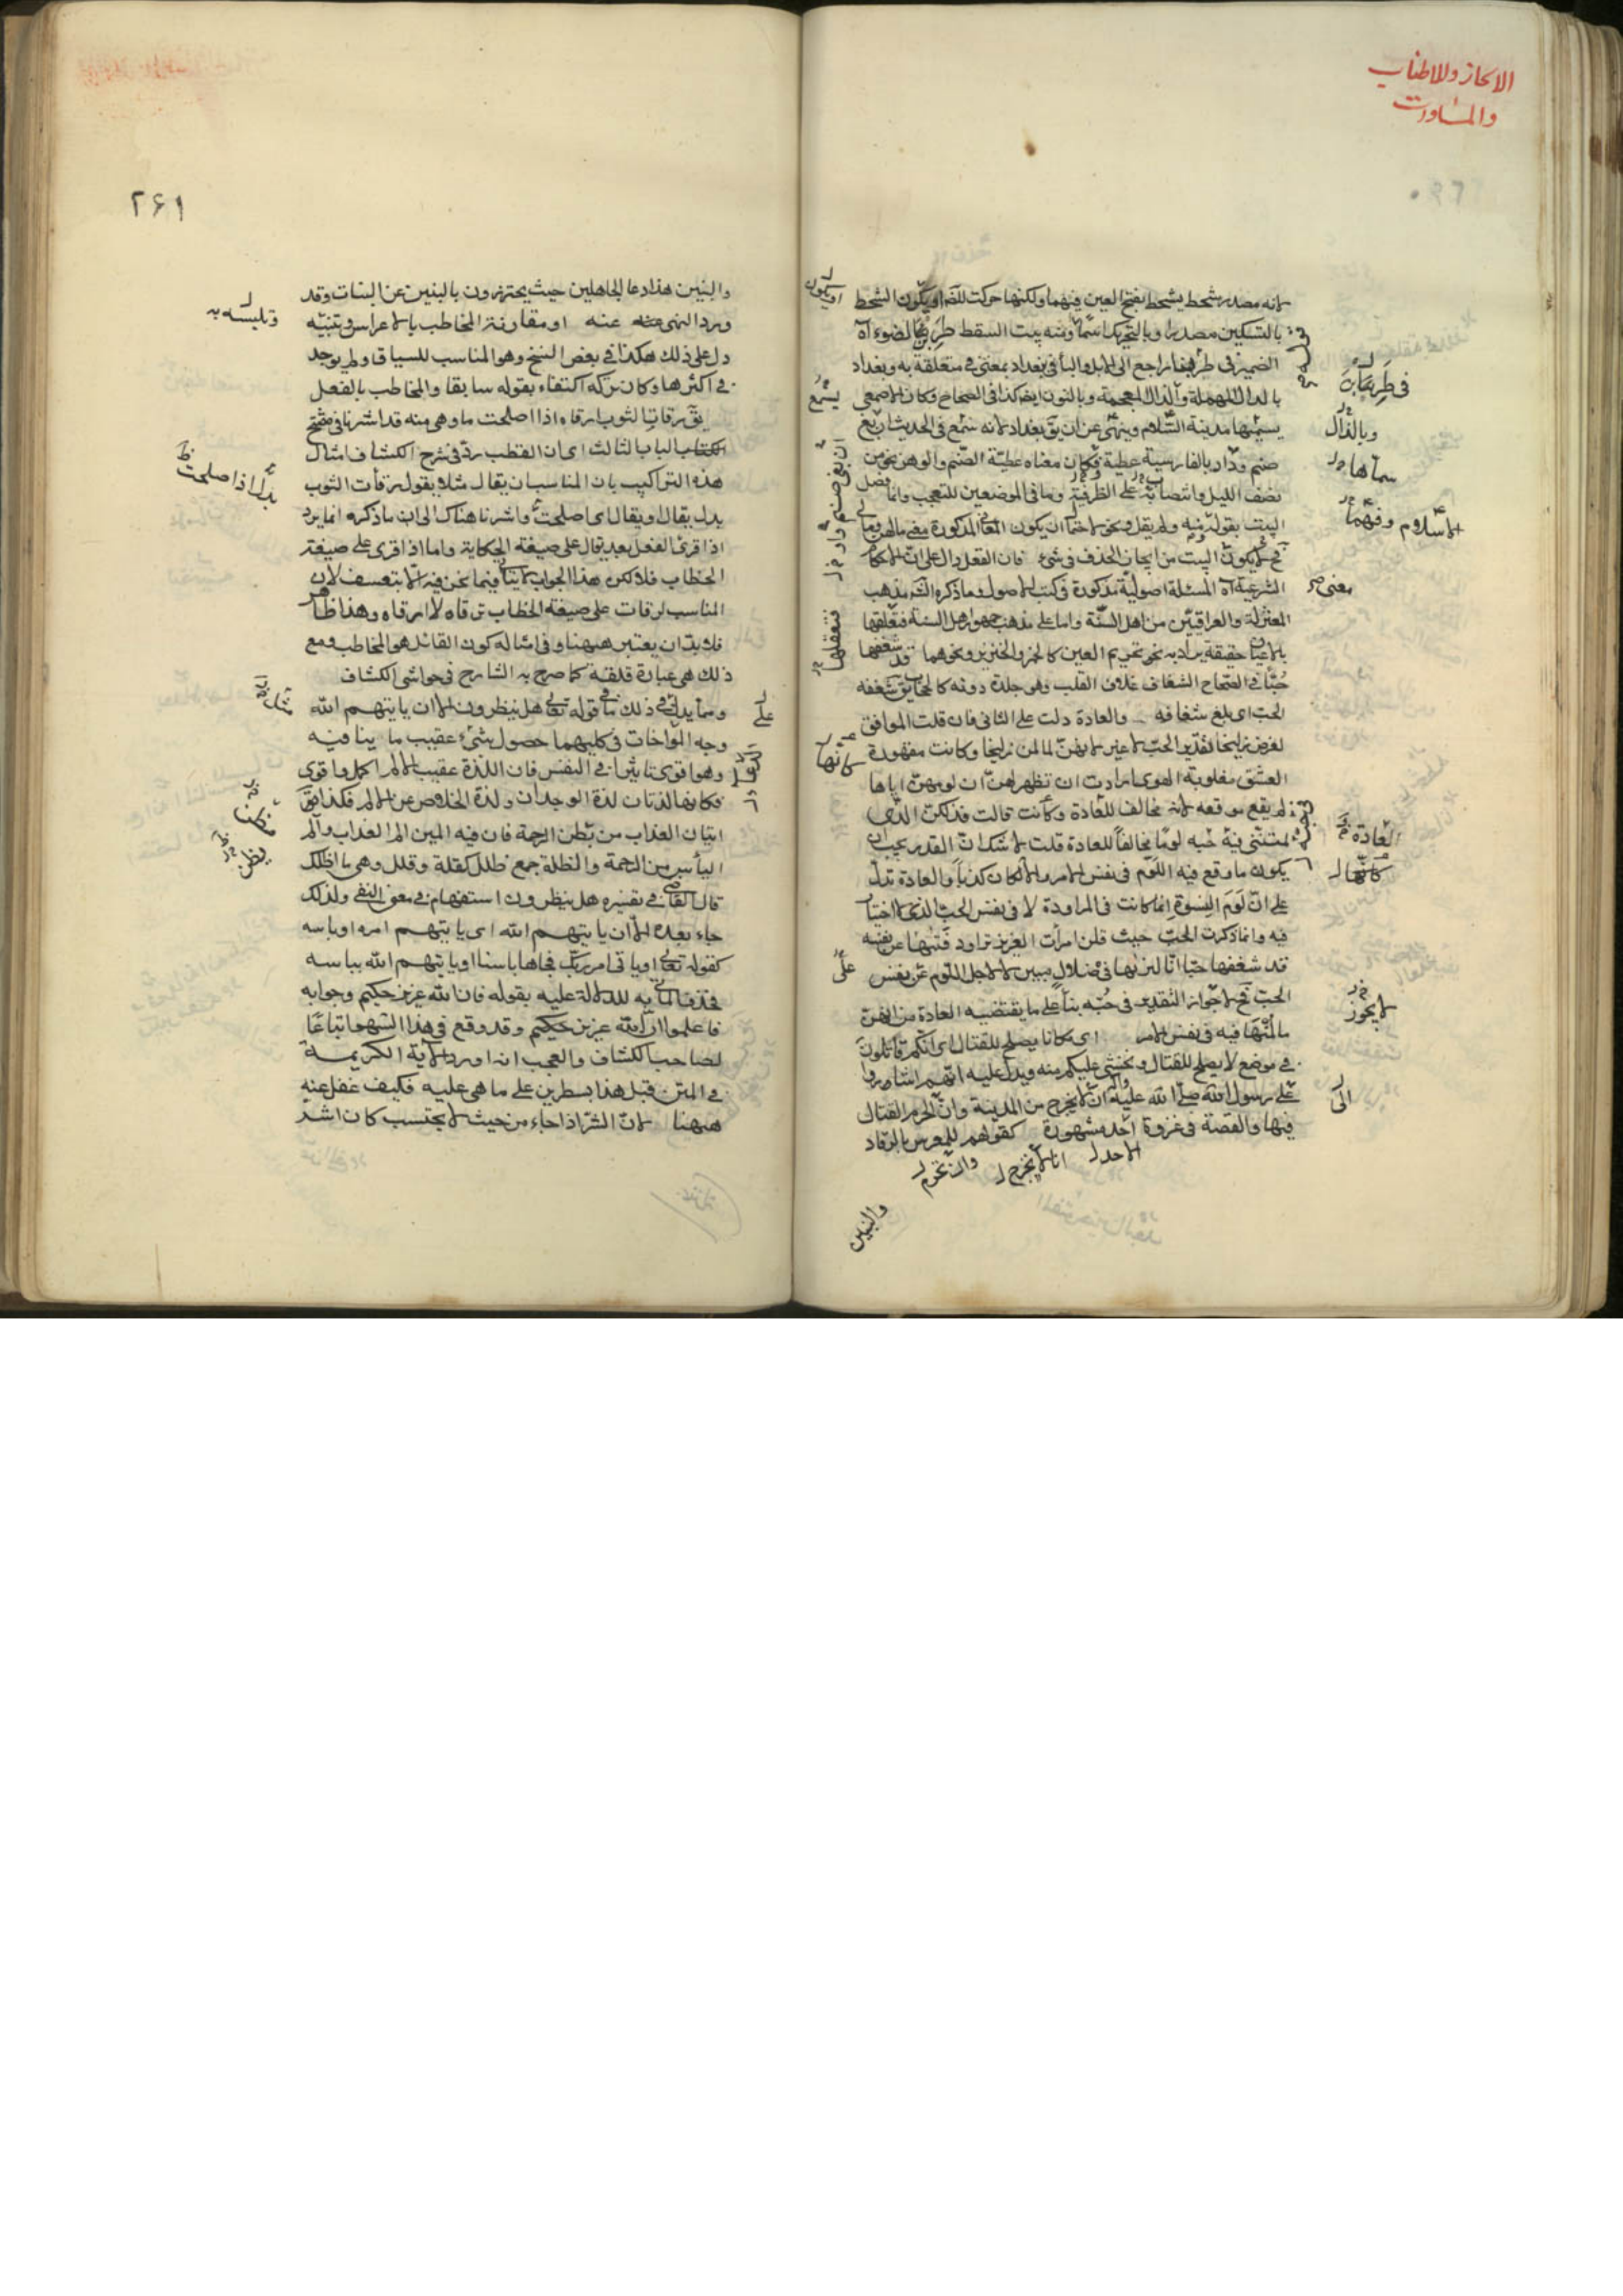 الايجاز والاطناب
والمساوات
لانه مصدر شحط يشحط بفتح العين فيهما ولكنها حركت للضر او يكون الشحط
بالتسكين مصدرا وبالتحريك اسما ومنه بيت السقط طربن لضوء آه
الضمير في طربن راجع الى الابل والبأ في بغداد بمعنى في متعلقة به وبغداد
بالدال المهملة والذال المعجمة وبالنون ايضا كذا في الصحاح وكان الاصمعي
يسميها مدينة السلام وينهى عن ان يق بغداد لانه سمع في الحديث ان بغ
صنم وداد بالفارسية عطية فكان معناه عطية الصنم والوهن نحو من
نصف الليل وانتصابه على الظرفية وما في الموضعين للتعجب وانما فصل
البيت بقوله ومنه ولم يقل ونحو لاحتمال ان يكون المعاني المذكورة
فح لا يكون البيت من ايجاز الحذف في شئ فان الفعل دال على ان الاحكام
الشرعية آه المسئلة اصولية مذكورة في كتب الاصول وما ذكره الشر مذهب
المعتزلة والعراقيين من اهل السنة واما على مذهب جمهور اهل السنة فتعلقها
بالاعيان حقيقة يراد به نحو تحريم العين كالخمر والخنزير ونحوهما قد شغفها
حبا في الصحاح الشغاف غلاف القلب وهو جلدة دونه كالحجاب يق شغفه
الحب اى بلغ شغافه والعادة دلت على الثاني فان قلت الموافق
لغرض زليخا تقدير الحب لا غير لانهن لما لمن زليخا وكانت مقهورة
العشق مغلوبة الهوى ارادت ان تظهر لهن ان لومهن اياها
لم يقع موقعه لانه مخالف للعادة وكانت قالت فذلكن الذى
لمتنني فيه حبه لوما مخالفا للعادة قلت لا شك ان القدر يجب ان
يكون ما وقع فيه اللوم في نفس الامر والا لكان كذبا والعادة تدل
على ان لوم النسوة انما كانت في المراودة لا في نفس الحب الذى لا اختيار
فيه وانما ذكرت الحب حيث قلن امرأت العزيز تراود فتيها عن نفسه
قد شغفها حبا انا لنريها في ضلال مبين لا لاجل اللوم عن نفس
الحب فح لا جواز التقدير في حبه بناء على ما يقتضيه العادة من انهن
ما لمنها فيه في نفس الامر اى مكانا يصلح للقتال اى انكم تقاتلون
في موضع لا يصلح للقتال ونخشى عليكم منه ويدل عليه انهم اشاروا
على رسول الله صلى الله عليه ان لا يخرج من المدينة وان الحرم القتال
فيها والقصة في غزوة احد مشهورة كقولهم للمعرس بالرفاد
والبنين
في طربن
وبالذال
سماها
الاسلام
معنى
العادة
كانها
لا يجوز
الى
او يكون
يسمع
كانها
على
٢۶١
والبنين هذا دعا الجاهلين حيث يحترزون بالبنين عن البنات وقد
ورد النهى عنه او مقارنة المخاطب بالاعراس وتنبيه
دل على ذلك هكذا في بعض النسخ وهو المناسب للسياق ولم يوجد
في اكثرها وكان تركه اكتفاء بقوله سابقا والمخاطب بالفعل
يق رفات الثوب ارفاه اذا اصلحت ما وهى منه قد اشرنا في مفتتح
الكتاب الباب الثالث اى ان القطب رد في شرح الكشاف امثال
هذه التراكيب بان المناسب ان يقال مثلا يقول رفأت الثوب
بدل يقال او يقال اى اصلحت واشرنا هناك الى ان ما ذكره انما يرد
اذا قرئ الفعل بعد يقال على صيغة الحكاية واما اذا قرى على صيغة
الخطاب فلا لكن هذا الجواب لا يتأتى فيما نحن فيه الا بتعسف لان
المناسب لرفات على صيغة الخطاب ترفاه لا ارفاه وهذا ظاهر
فلا بد ان يعتبر ههنا وفي امثاله كون القائل هو المخاطب ومع
ذلك هى عبارة قلقة كما صرح به الشارح في حواشى الكشاف
ومما يدل في ذلك ما في قوله تعالى هل ينظرون الا ان ياتيهم الله
وجه المواخات في كليهما حصول شئ عقيب ما ينافيه
وهو اقوى تاثيرا في النفس فان اللذة عقيب الالم اكمل واقوى
فكانها لذتان لذة الوجدان ولذة الخلاص عن الالم فكذا يق
اتيان العذاب من بطن الرحمة فان فيه المين الم العذاب والم
اليأس من الرحمة والظلة جمع ظلل كقلة وقلل وهى ما اظلك
قال القاضى في تفسيره هل ينظرون استفهام في معنى النفى ولذلك
جاء بعده الا ان ياتيهم الله اى ياتيهم امره او باسه
كقوله تعالى او ياتى امر ربك فجاها باسنا او ياتيهم الله بباسه
فحذف المأتى به للدلالة عليه بقوله فان الله عزيز حكيم وجوابه
فاعلموا ان الله عزيز حكيم وقد وقع في هذا السهو اتباعا
لصاحب الكشاف والعجب انه اورد الآية الكريمة
في المتن قبل هذا بسطرين على ما هى عليه فكيف غفل عنه
ههنا لان الشر اذا جاء من حيث لا يحتسب كان اشد
وتلبسه به
بدل اذا صلحت
على